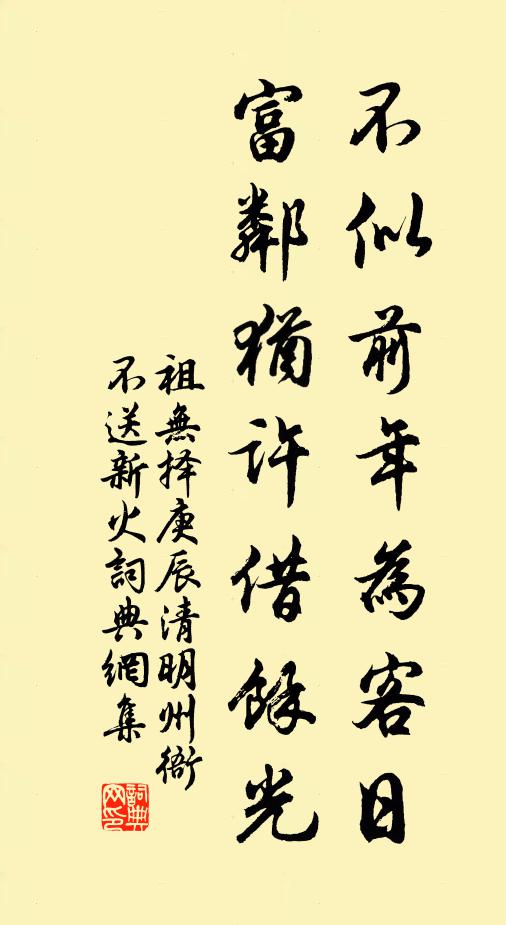 不似前年為客日
富鄰猶許借餘光
祖無择庚辰清明州衙
不送新火詞典網集
詞典
网印